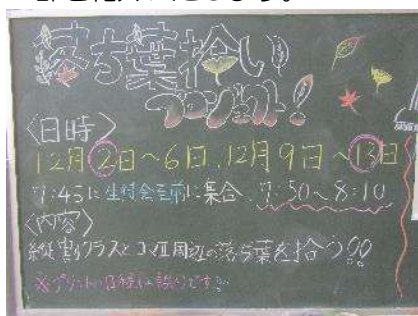 落ち葉拾い
プロジェクト!
〈日時〉
12月2日〜6日、12月9日〜13日
7:45に生徒会室前に集合、7:50〜8:10
〈内容〉
縦割りクラスとコマ周辺の落ち葉を拾う!!
※プリントの日程は誤りです!